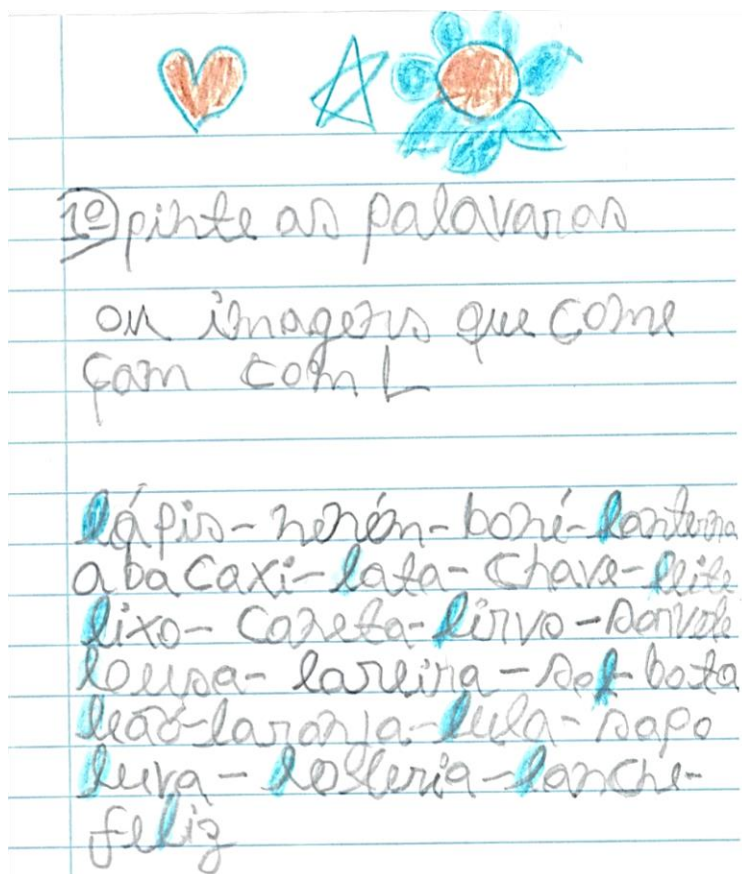 1º pinte as palavaras
ou imagens que come
çam com L
lápis - nenén - boné - lanterna
abacaxi - lata - chave - leite
lixo - caneta - lirvo - sorvete
lousa - lareira - sol - bota
leão - laranja - lula - sapo
luva - losteria - lanche -
feliz